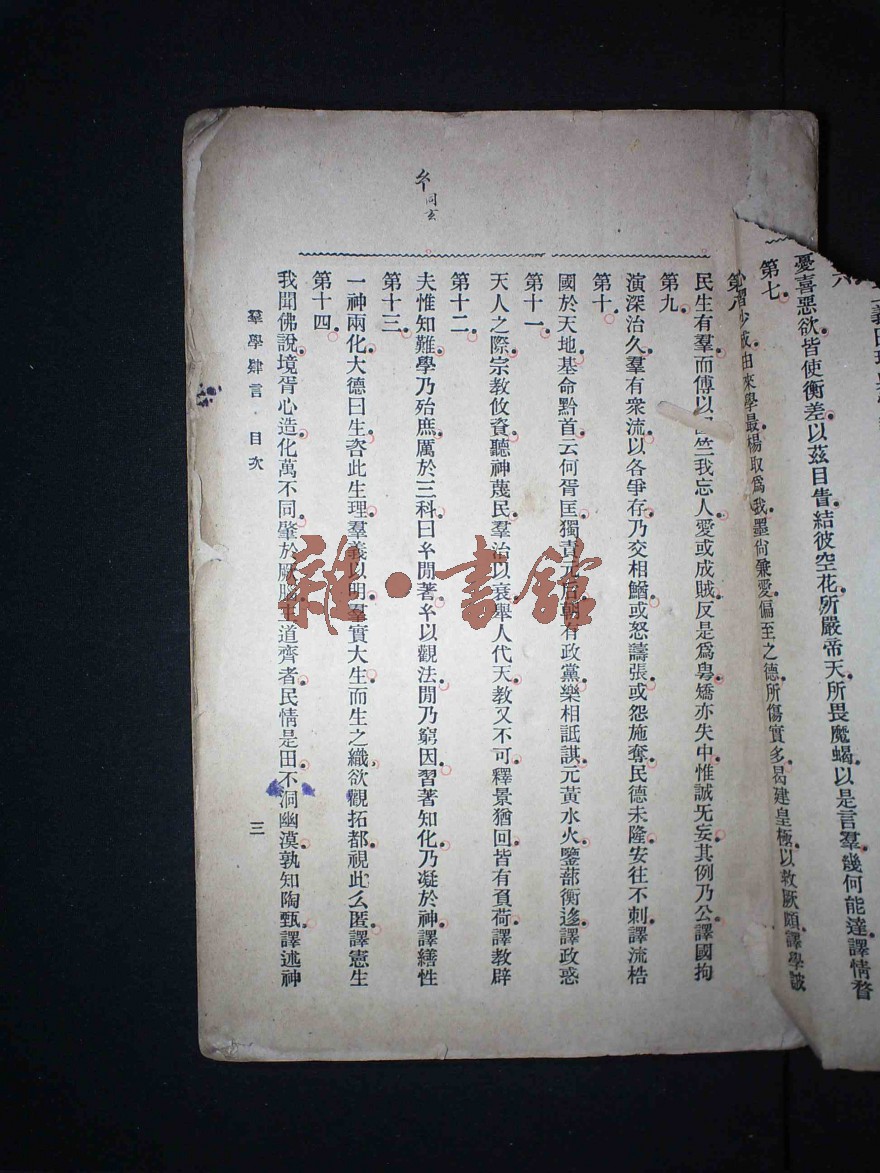 憂喜惡欲皆使衡差以茲目眚結彼空花所嚴帝天所畏魔蝎以是言羣幾何能達譯情瞀
第七
習少成由來學最楊取爲我墨尙兼愛偏至之德所傷實多曷建皇極以救厥頗譯學詖
第八
民生有羣而傅以竺我忘人愛或成賊反是爲粵矯亦失中惟誠旡妄其例乃公譯國拘
第九
演深治久羣有衆流以各爭存乃交相鰌或怒譸張或怨施奪民德未隆安往不刺譯流梏
第十
國於天地基命黔首云何胥匡獨責元后朝有政黨樂相詆諆元黃水火鑒蔀衡迻譯政惑
第十一
天人之際宗教攸資聽神蔑民羣治以衰舉人代天教又不可釋景猶回皆有負荷譯教辟
第十二
夫惟知難學乃殆庶厲於三科曰㡯閒著㡯以觀法閒乃窮因習著知化乃凝於神譯繕性
第十三
一神兩化大德曰生咨此生理羣義以明羣實大生而生之織欲觀拓都視此么匿譯憲生
第十四
我聞佛說境胥心造化萬不同肇於厥腦主道齊者民情是田不洞幽漠孰知陶甄譯述神
羣學肄言 目次
三
同玄
雜·書館